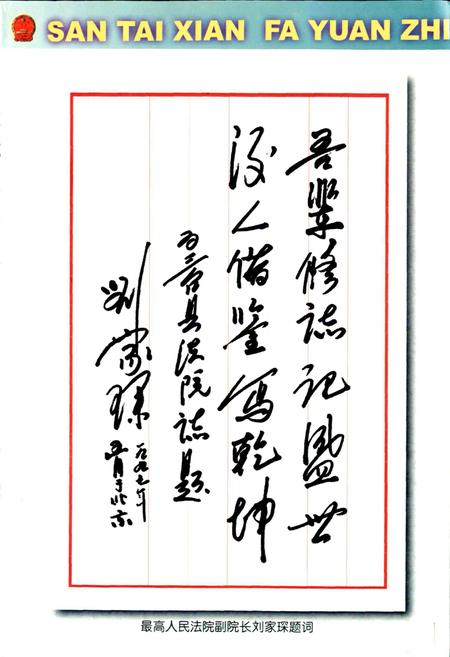 SAN TAI XIAN FA YUAN ZHI
吾辈修志记盛世
后人借鉴写乾坤
为三台县法院志题
刘家琛
一九九七年
五月于北京
最高人民法院副院长刘家琛题词